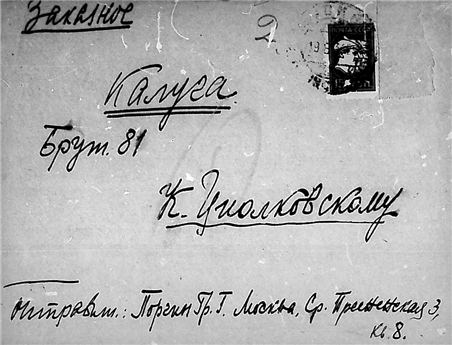 Заказное
2
ПОЧТА СССР
Калуга
Брут. 81
К. Циолковскому
Отправит.: Г. Москва, Ср. Пресненская 3,
кв. 8.